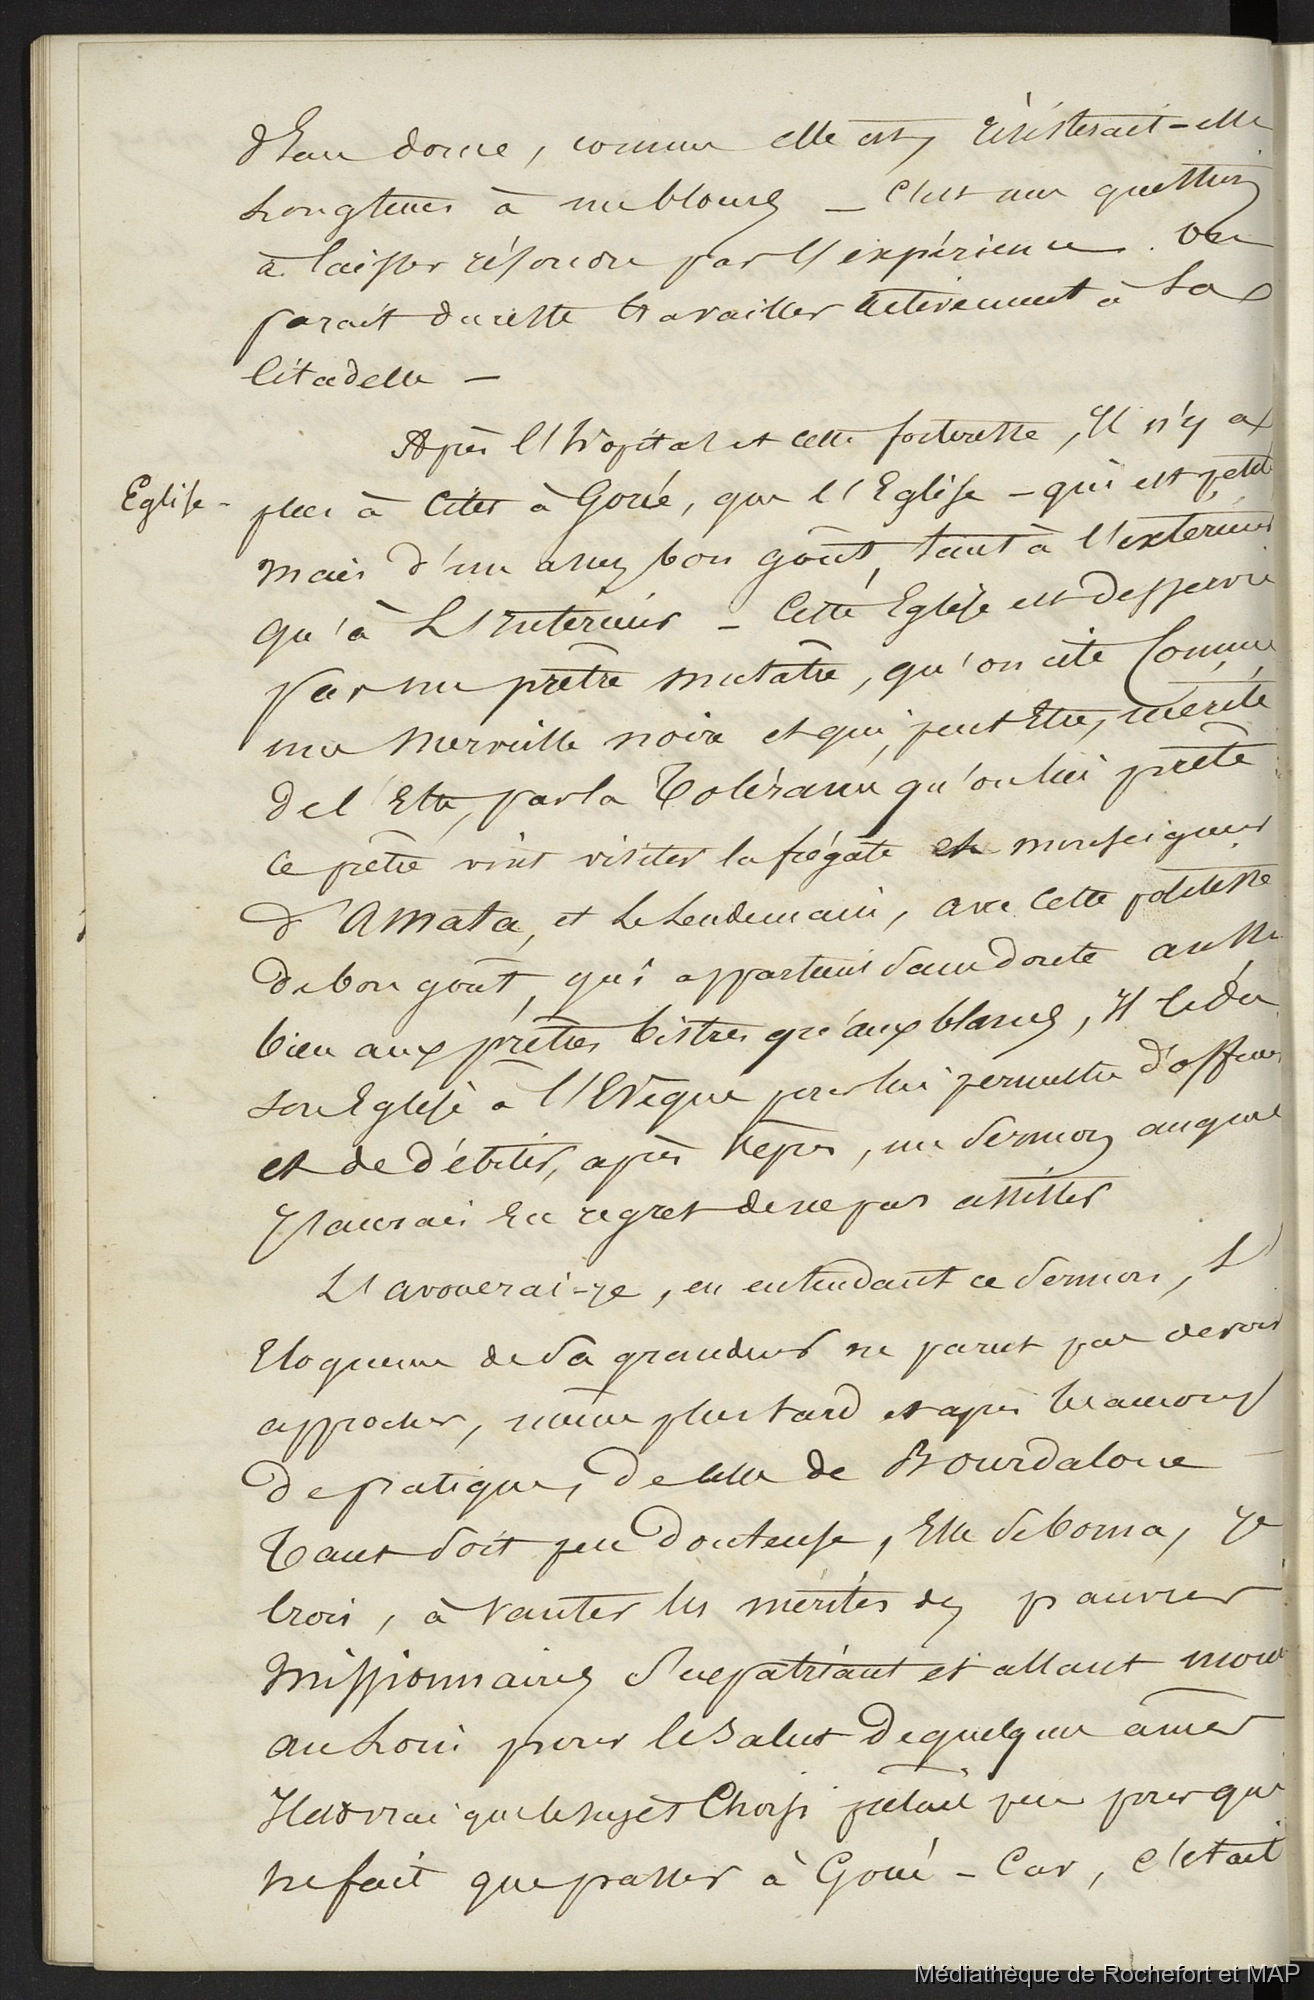 d'Eau douce, comme elle est, résisterait-elle
Longtems à un blocus _ C'est une question
à laisser résoudre par l'expérience. On
parait du reste travailler activement à La
Citadelle _
Après l'hopital et cette forteresse, Il n'y a
Eglise - plus à Citer à Gorée, que l'Eglise _ qui est petite
mais d'un assez bon goût, tant à l'extérieur
qu'à L'Intérieur _ Cette Eglise est desservie
par un prêtre mulatre, qu'on cite Comme
une Merveille noire et qui, peut Etre, mérite
de l'Etre, par la Tolérance qu'on lui prête
Ce prêtre vint visiter la frégate et monseigneur
d'Amata, et Le Lendemain, avec Cette politesse
de bon goût, qui appartient sans doute aussi
bien aux prêtres bistres qu'aux blancs, Il céda
son Eglise à l'Evêque pour lui permettre d'officier
et de débiter, après Vêpres, un Sermon auquel
J'aurais Eu regret de ne pas assister
L'avouerai-je, en entendant ce Sermon, L'
Eloquence de Sa grandeur ne parut pas devoir
approcher, même plus tard et après beaucoup
de pratique, de celle de Bourdaloue _
Tant soit peu douteuse, Elle se borna, je
Crois, à Vanter les mérites des pauvres
Missionnaires S'expatriant et allant mourir
au Loin pour le Salut de quelques âmes
Il est vrai que le sujet Choisi prêtait peu pour qui
ne fait que passer à Gorée _ Car, c'était
Médiathèque de Rochefort et MAP